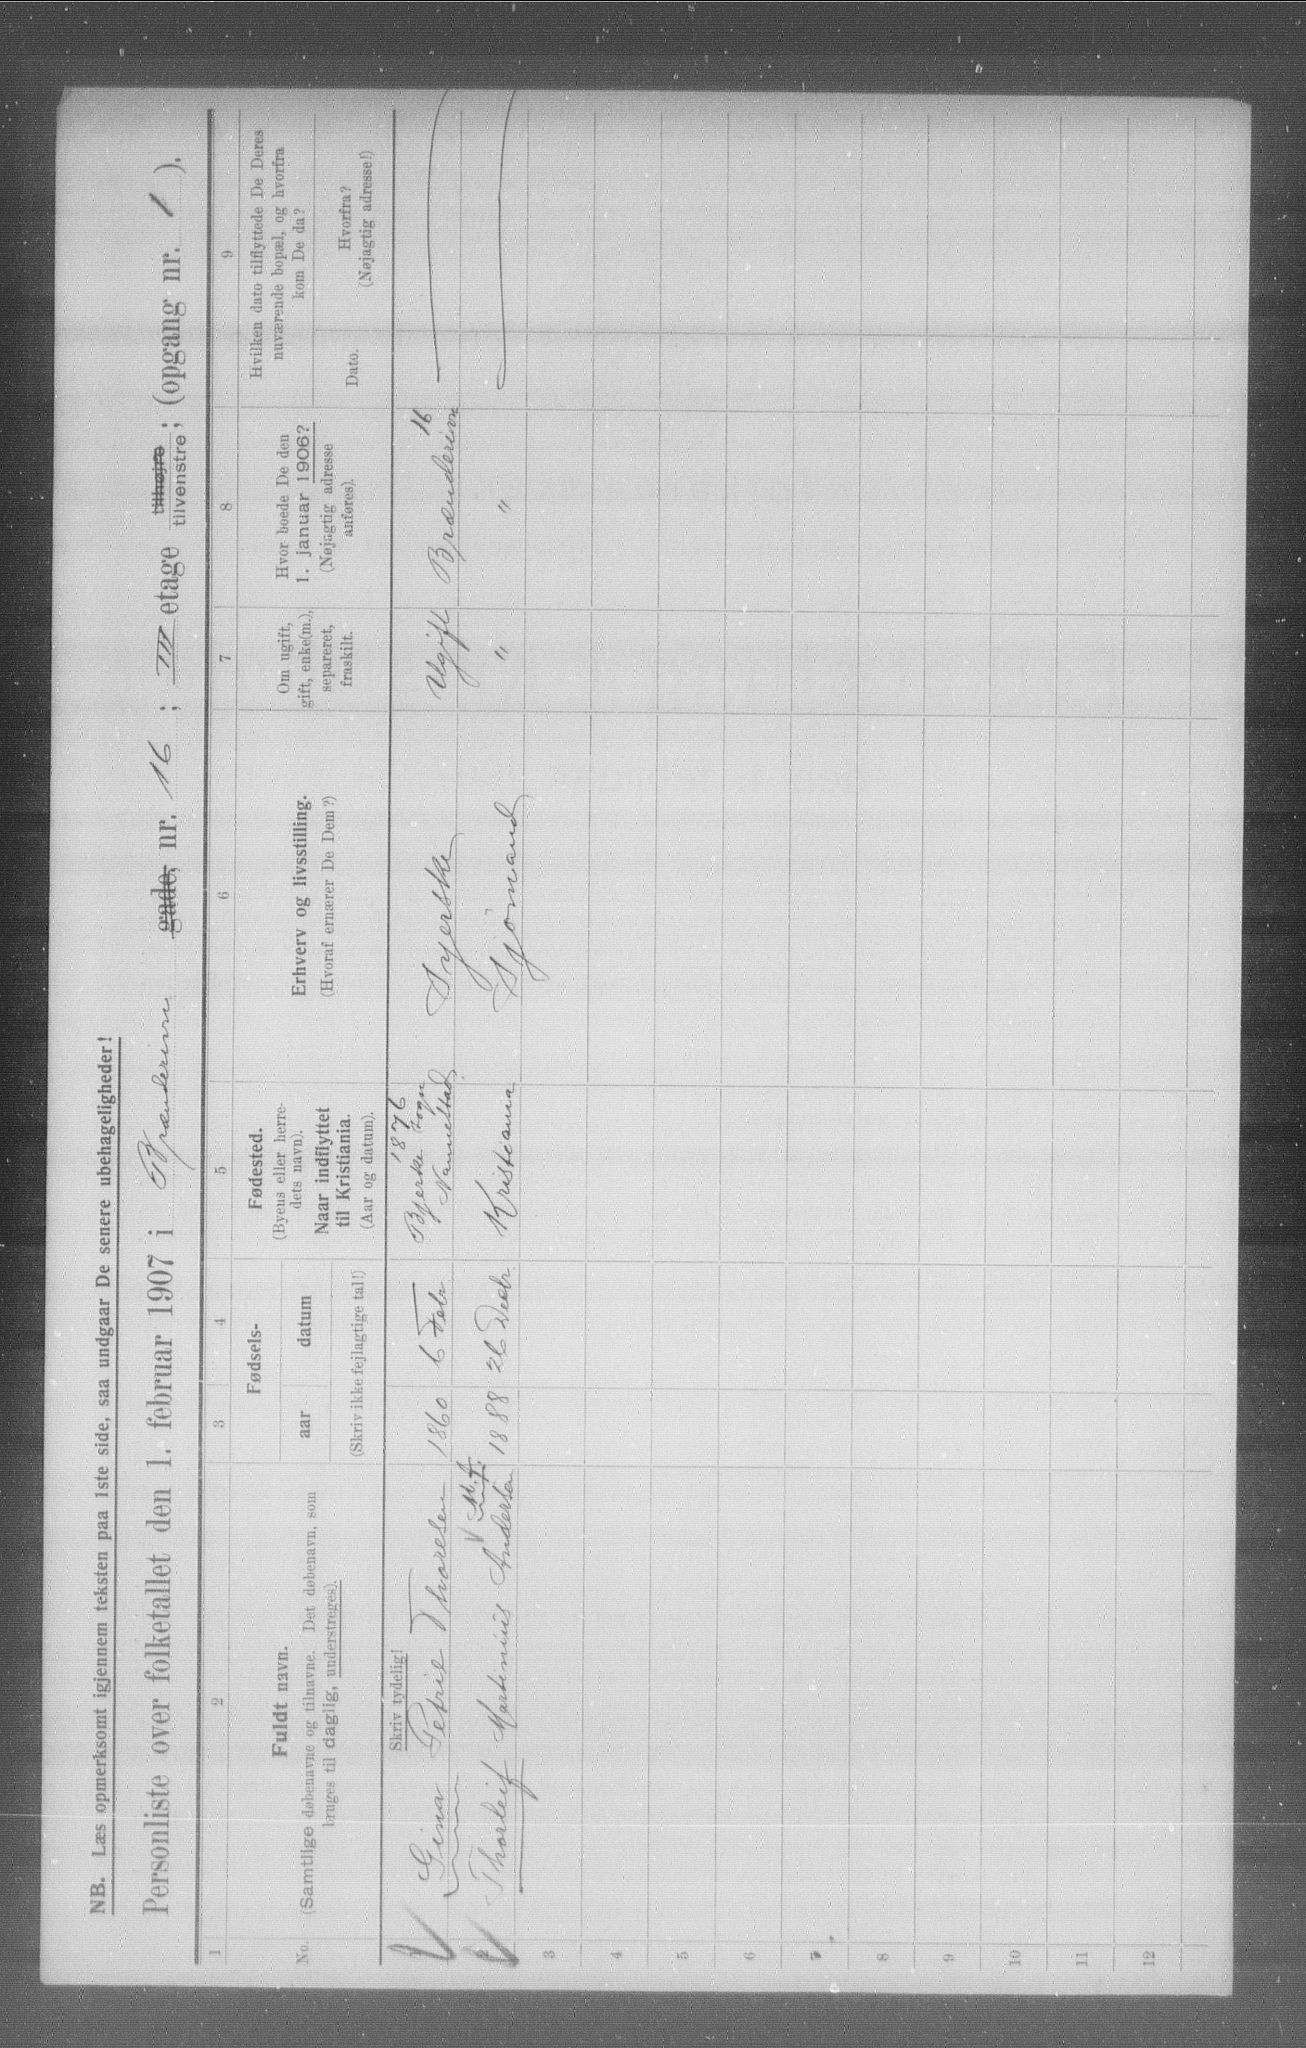 NB. Læs opmerksomt igjennem teksten paa 1ste side, saa undgaar De senere ubehageligheder!
Personliste over folketallet den 1. februar 1907 i Brænderiveien gade, nr. 16; III etage tilhøjre tilvenstre; (opgang nr. 1).
1 2 3 4 5 6 7 8 9
No.
Fuldt navn.
(Samtlige døbenavne og tilnavne. Det døbenavn, som
bruges til daglig, understreges).
Fødsels-
aar datum
(Skriv ikke fejlagtige tal!)
Fødested.
(Byens eller herre-
dets navn).
Naar indflyttet
til Kristiania.
(Aar og datum).
Erhverv og livsstilling.
(Hvoraf ernærer De Dem?)
Om ugift,
gift, enke(m.),
separeret,
fraskilt.
Hvor boede De den
1. januar 1906?
(Nøjagtig adresse
anføres).
Hvilken dato tilflyttede De Deres
nuværende bopæl, og hvorfra
kom De da?
Dato.
Hvorfra?
(Nøjagtig adresse!)
Skriv tydelig!
1876
1 Gina Petrie Thoresen 1860 6 Febr Bjerke sogn Nannestad Syerske Ugift Brænderivn 16
2 Thorleif Martinius Andersen 1888 26 Decbr. Kristiania Sjømand " "
3
4
5
6
7
8
9
10
11
12